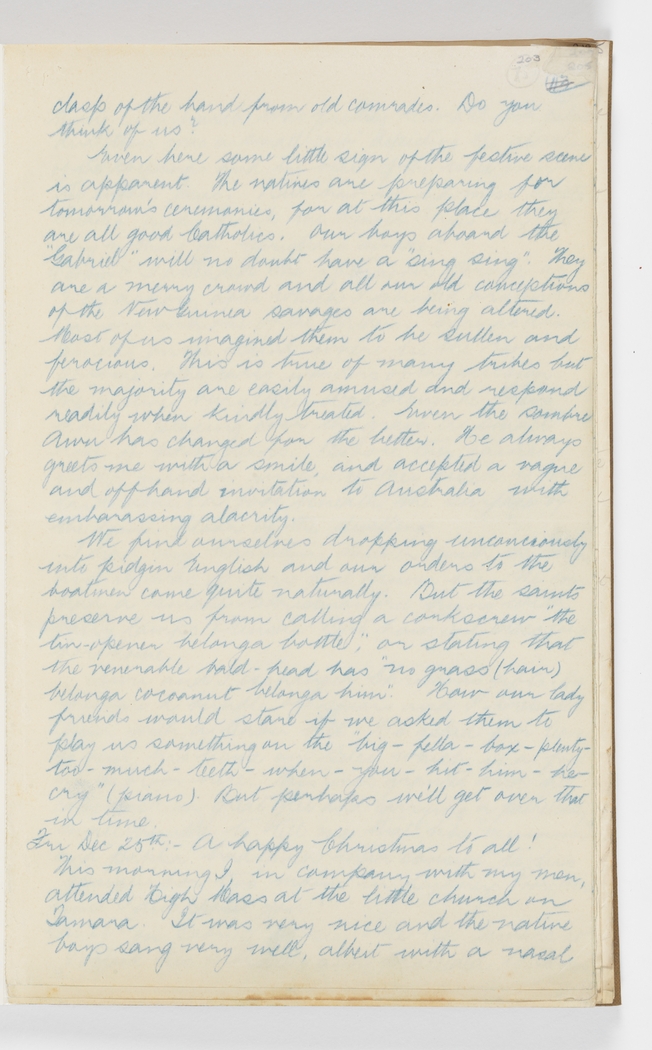 203
clasp of the hand from old comrades. Do you
think of us?
Even here some little sign of the festive scene
is apparent. The natives are preparing for
tomorrow's ceremonies, for at this place they
are all good Catholics. Our boys aboard the
"Gabriel" will no doubt have a "sing sing". They
are a merry crowd and all our old conceptions
of the New Guinea savages are being altered.
Most of us imagined them to be sullen and
ferocious. This is true of many tribes but
the majority are easily amused and respond
readily when kindly treated. Even the sombre
Awu has changed for the better. He always
greets me with a smile, and accepted a vague
and offhand invitation to Australia with
embarassing alacrity.
We find ourselves dropping unconciously
into pidgin English and our orders to the
boatmen come quite naturally. But the saints
preserve us from calling a corkscrew "the
tin-opener belonga bottle", or stating that
the venerable bald-head has "no grass (hair)
belonga cocoanut belonga him". How our lady
friends would stare if we asked them to
play us something on the "big-fella-box-plenty-
too-much-teeth-when-you-hit-him-he-
cry" (piano). But perhaps we'll get over that
in time.
Fri Dec 25th:- A happy Christmas to all!
This morning I, in company with my men,
attended High Mass at the little church on
Tamara. It was very nice and the native
boys sang very well, albeit with a nasal